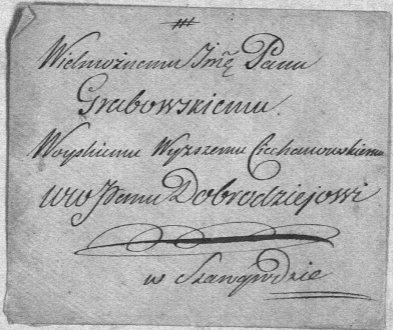 Wielmożnemu Jmć Panu
Grabowskiemu.
Woyskiemu Wyższemu Ciechanowskiemu
WW Panu Dobrodziejowi
w